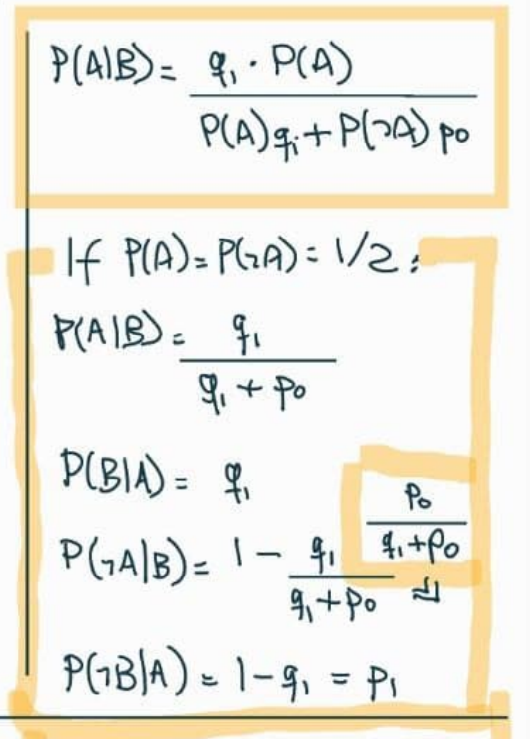 P(A|B) = q₁ · P(A)
P(A)qᵢ + P(¬A) p₀
If P(A) = P(¬A) = 1/2 :
P(A|B) = q₁
q₁ + p₀
P(B|A) = q₁
p₀
q₁ + p₀
P(¬A|B) = 1 - q₁
q₁ + p₀
P(¬B|A) = 1 - q₁ = p₁